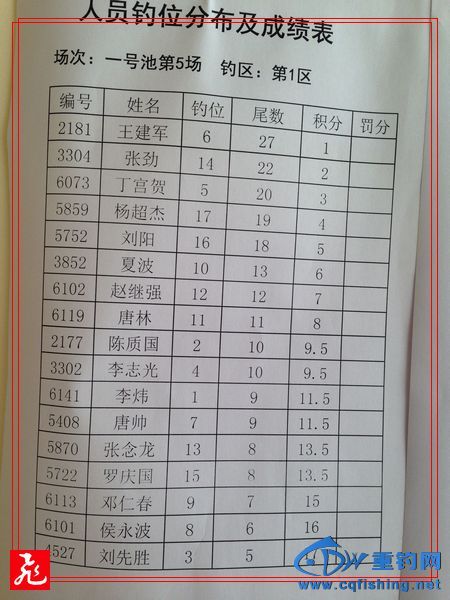 人员钓位分布及成绩表
场次：一号池第5场 钓区：第1区
编号 姓名 钓位 尾数 积分 罚分
2181 王建军 6 27 1
3304 张劲 14 22 2
6073 丁宫贺 5 20 3
5859 杨超杰 17 19 4
5752 刘阳 16 18 5
3852 夏波 10 13 6
6102 赵继强 12 12 7
6119 唐林 11 11 8
2177 陈质国 2 10 9.5
3302 李志光 4 10 9.5
6141 李炜 1 9 11.5
5408 唐帅 7 9 11.5
5870 张念龙 13 8 13.5
5722 罗庆国 15 8 13.5
6113 邓仁春 9 7 15
6101 侯永波 8 6 16
4527 刘先胜 3 5
重钓网
www.cqfishing.net